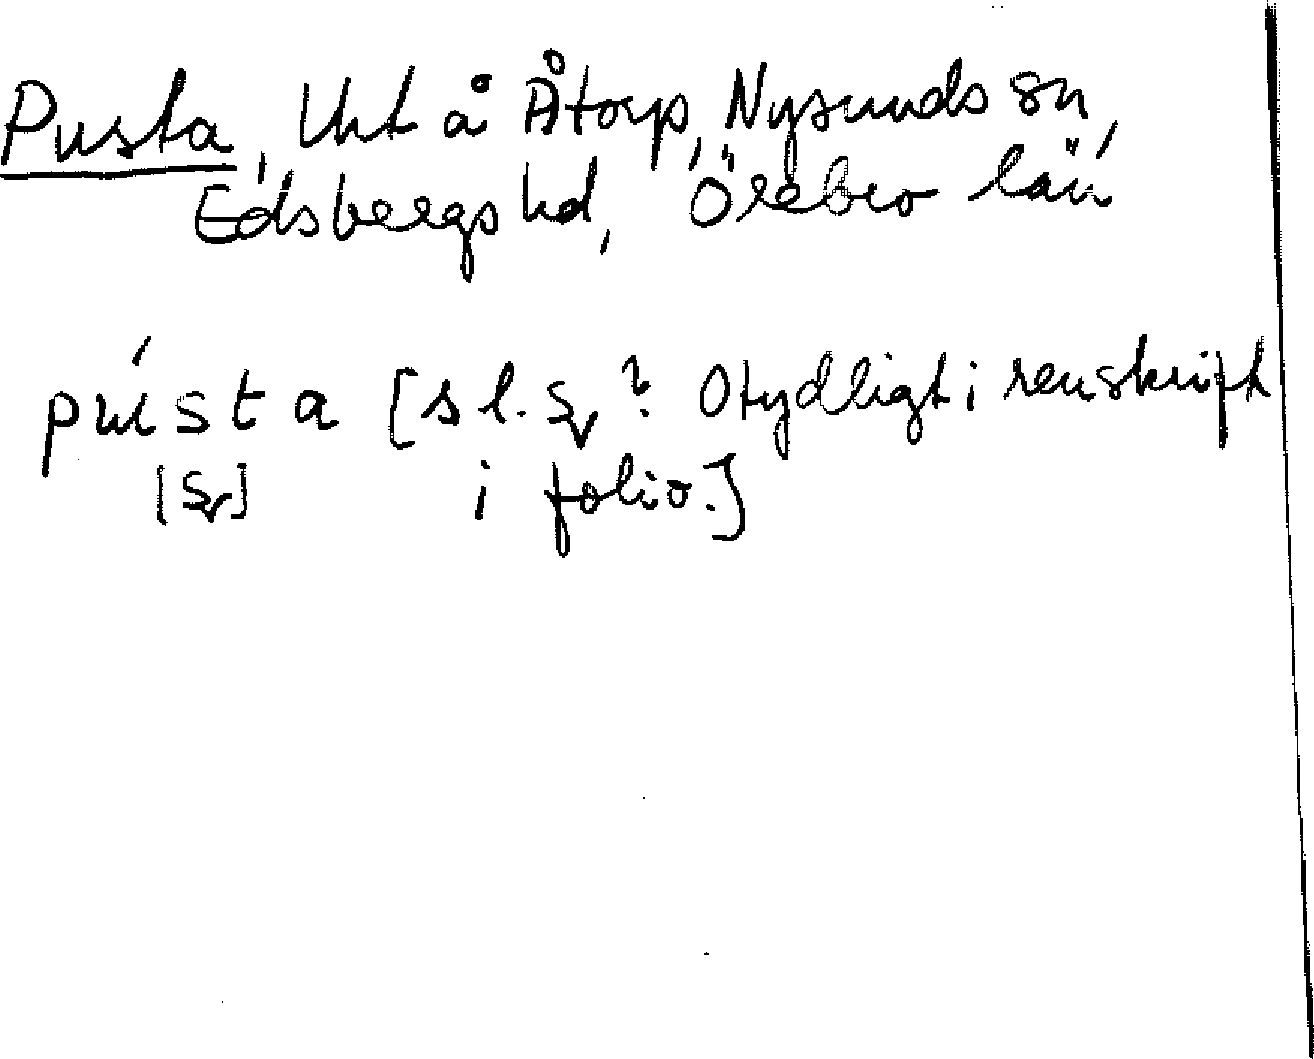 Pusta, lht å Åtorp, Nysunds sn,
Edsbergs hd, Örebro län
pústa [sl. ? Otydligt i renskrift
i folio.]